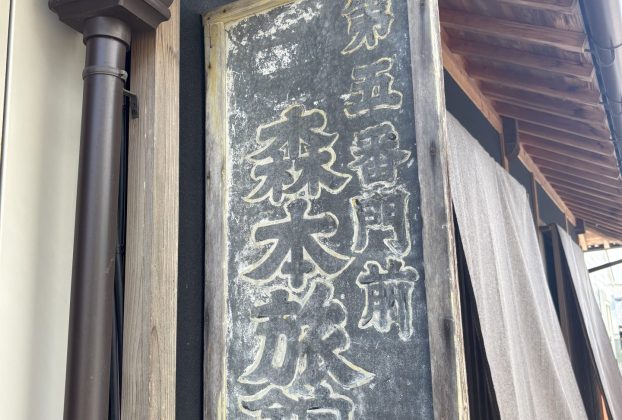 第五番門前
森本旅